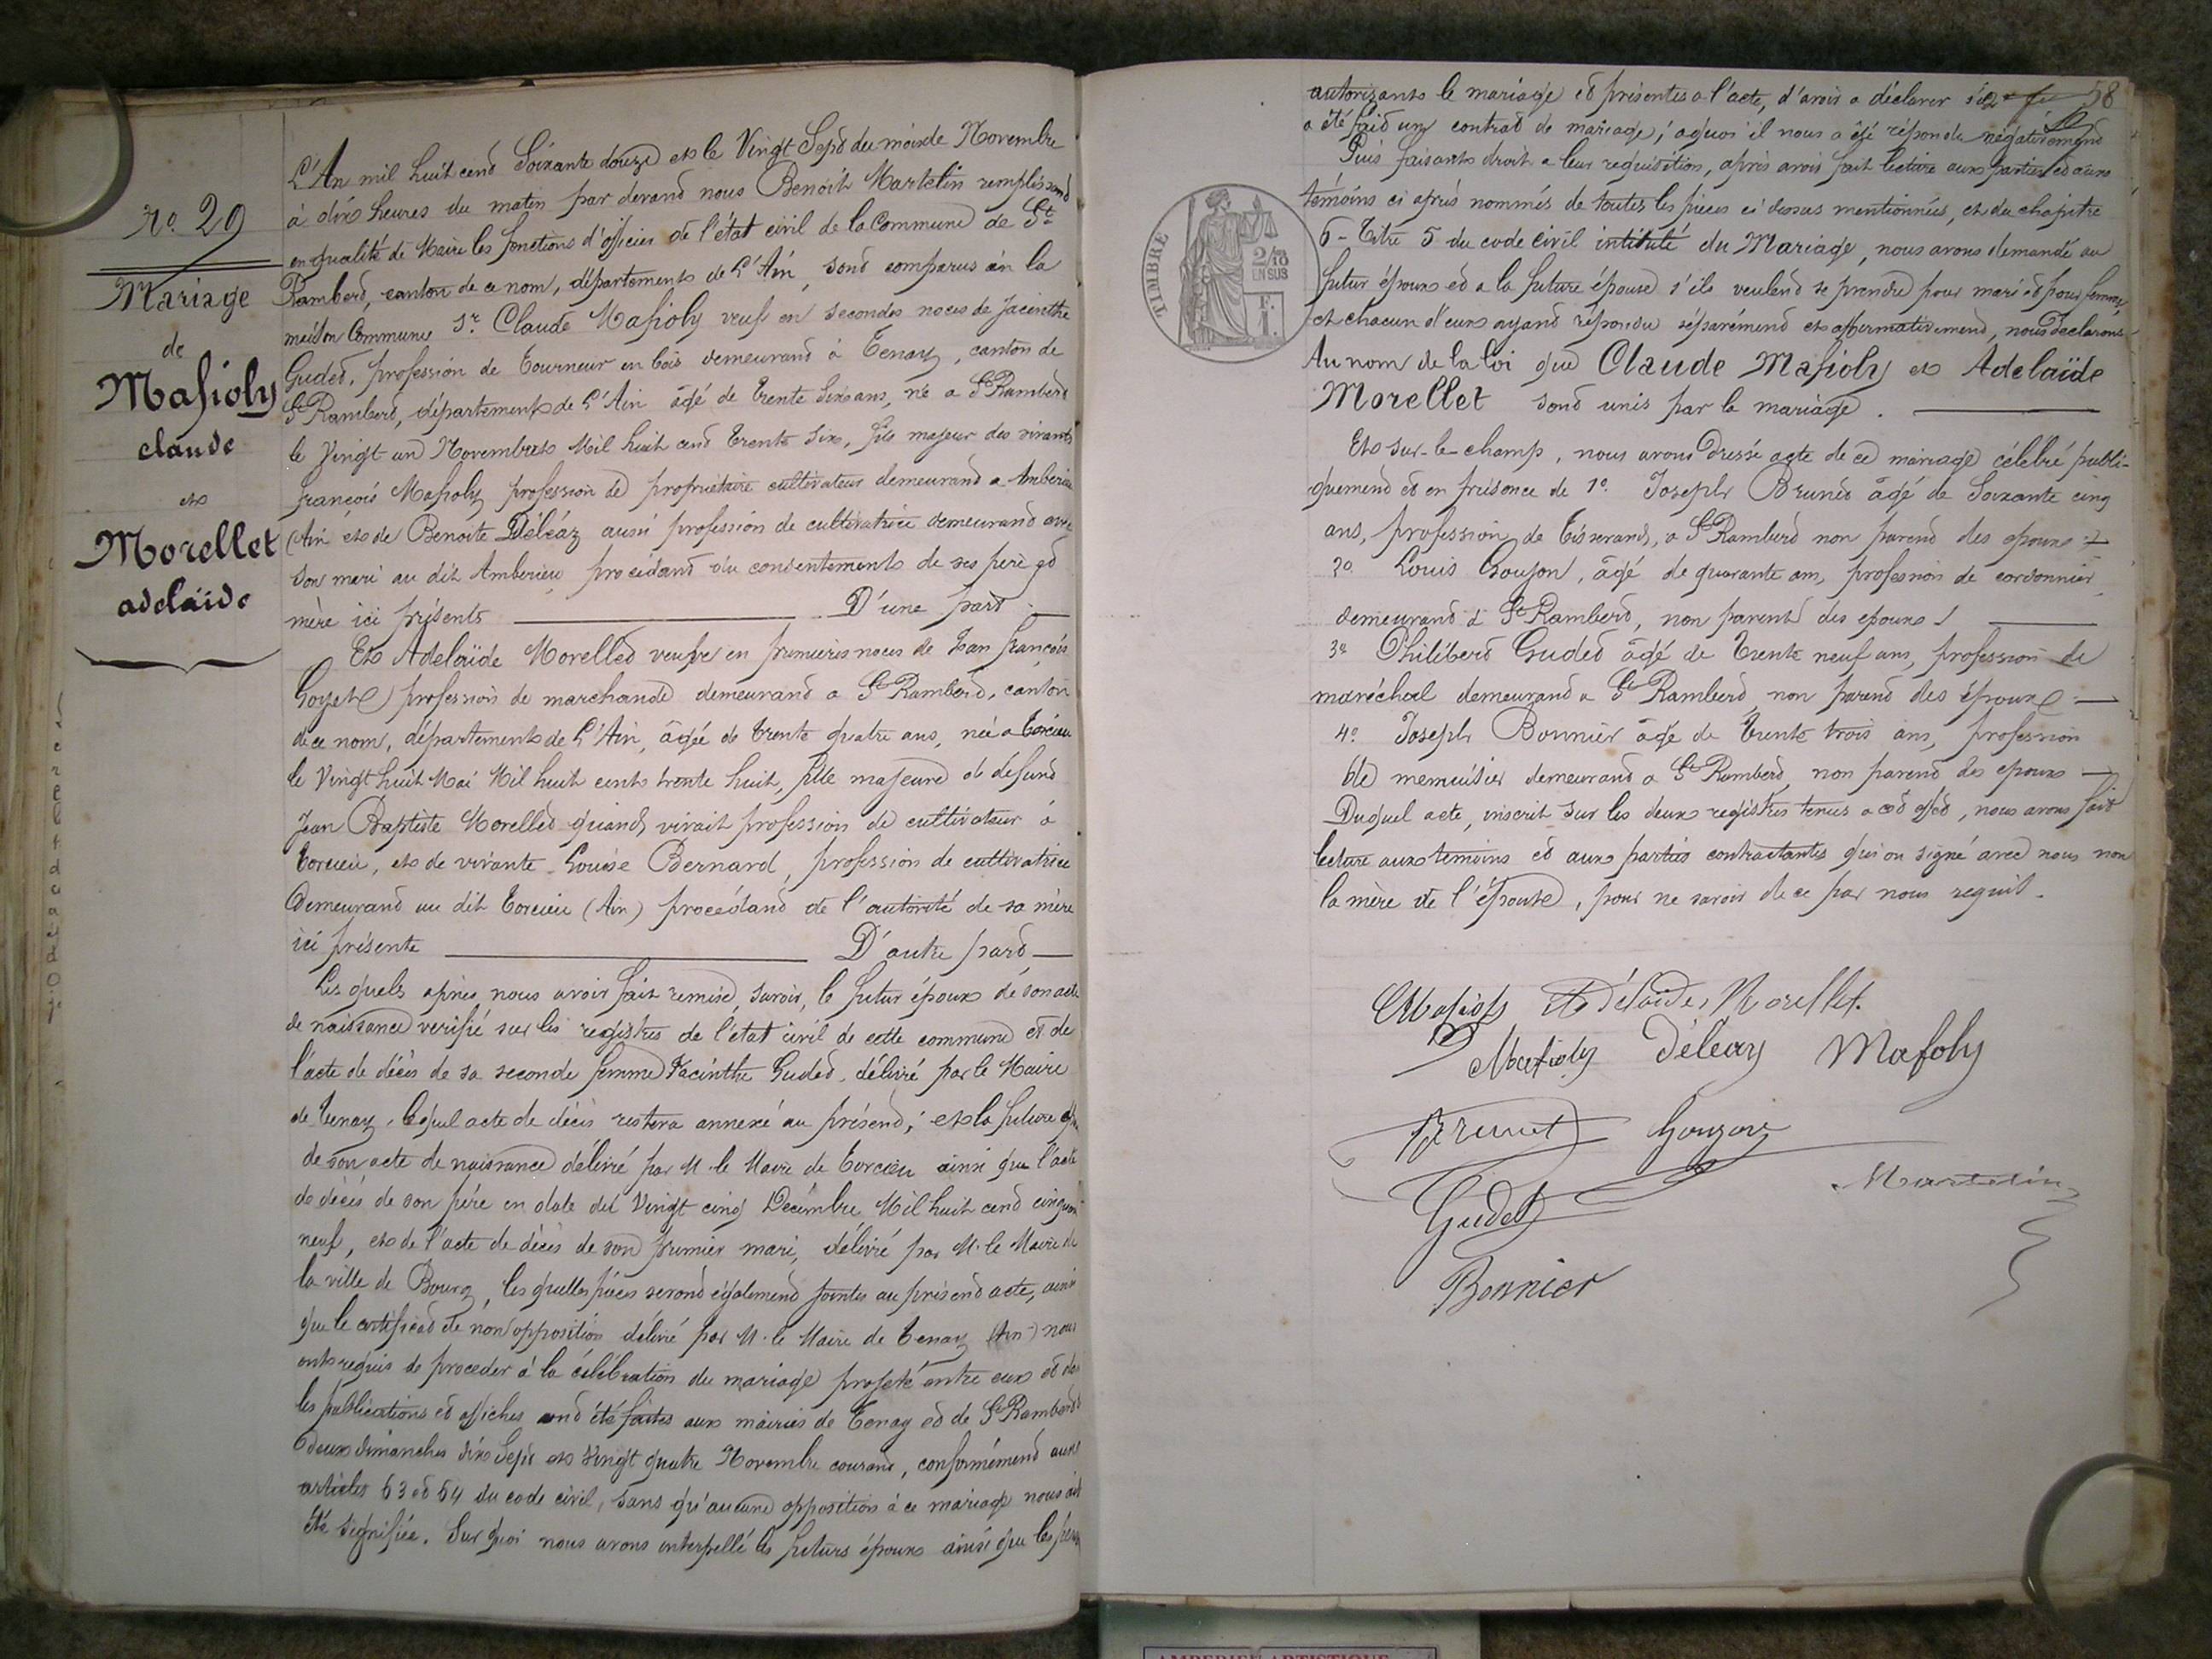 No. 29
Mariage
de
Masioly
claude
et
Morellet
adelaïde
L'An mil huit cend Soixante douze et le Vingt Sept du mois de Novembre
à dix heures du matin par devand nous Benoit Martelin remplissand
en qualité de Maire les fonctions d'officier de l'état civil de la Commune de St
Ramberd, canton de ce nom, département de L'Ain, sond comparus en la
maison Commune Sr. Claude Masioly veuf en secondes noces de Jacinthe
Guded, profession de Tourneur en bois demeurand à Tenay, canton de
St Ramberd, département de L'Ain âgé de trente six ans, né a St Ramberd
le Vingt un Novembre Mil huit cend trente six, fils majeur des vivants
françois Masioly profession de propriétaire cultivateur demeurand a Amberieu
(Ain et de Benoite Déléaz aussi profession de cultivatrice demeurand avec
son mari au dit Amberieu procédand du consentement de ses père ed
mère ici présents D'une part
Et Adelaïde Morelled veufve en premieres noces de Jean françois
Goyet profession de marchande demeurand a St Ramberd, canton
de ce nom, département de L'Ain, âgée de trente quatre ans, née a Torcieu
le Vingt huit Mai Mil huit cent trente huit, fille majeure de defund
Jean Baptiste Morelled quand vivait profession de cultivateur à
Torcieu, et de vivante Louise Bernard, profession de cultivatrice
Demeurand au dit Torcieu (Ain) procédand de l'autorité de sa mère
ici présente D'autre pard
Les quels après nous avoir fait remise, savoir, le futur époux de son acte
de naissance verifié sur les registres de l'état civil de cette commune et de
l'acte de décès de sa seconde femme Jacinthe Guded, délivré par le Maire
de Tenay, lequel acte de décès restera annexé au présend; et la future
de son acte de naissance délivré par M. le Maire de Torcieu ainsi que l'acte
de décès de son père en date del Vingt cinq Décembre Mil huit cend cinquante
neuf, et de l'acte de décès de son premier mari, délivré par M. le Maire de
la ville de Bourg, les quelles pièces serond egalemend jointes au présend acte, ainsi
que le certificad de non opposition délivré par M. le Maire de Tenay (Ain) nous
ont requis de proceder à la célébration du mariage projeté entre eux ed des
les publications ed affiches ond été faites aux mairies de Tenay ed de St Ramberd
deux dimanches dix Sept et Vingt quatre Novembre courand, conformémend aux
articles 63 ed 64 du code civil, sans qu'aucune opposition à ce mariage nous ait
été signifiée. Sur quoi nous avons interpellé les futurs époux ainsi que les
58
autorisants le mariage ed présentes a l'acte, d'avoir a déclarer s'il
a été faid un contrad de mariage; a quoi il nous a été répondu négativemend
Puis faisant droit a leur requisition, après avoir fait lecture aux parties ed aux
témoins ci après nommés de toutes les pièces ci dessus mentionnées, et du chapitre
6 - Titre 5 du code civil intitulé du Mariage, nous avons demandé au
futur époux ed a la future épouse s'ils veulend se prendre pour mari ed pour femme
et chacun d'eux ayand répondu séparémend et affirmativemend, nous declarons
Au nom de la loi que Claude Masioly et Adelaïde
Morellet sond unis par le mariage.
TIMBRE
2/10
EN SUS
F.
1.
Et sur-le-champ, nous avons dressé acte de ce mariage célébré publi-
quemend ed en présence de 1o. Joseph Bruned âgé de Soixante cinq
ans, profession de Tisserand, a St Ramberd non parend des epoux
2o. Louis Goujon, âgé de quarante ans, profession de cordonnier
demeurand à St Ramberd, non parend des epoux
3o Philiberd Guded âgé de trente neuf ans, profession de
maréchal demeurand a St Ramberd non parend des époux
4o. Joseph Bonnier âgé de trente trois ans, profession
de menuisier demeurand a St Ramberd non parend des epoux
Duquel acte, inscrit sur les deux registres tenus a ced effed, nous avons fait
lecture aux temoins ed aux parties contractantes qui on signé avec nous non
la mère de l'épouse, pour ne savoir de ce par nous requis.
Masioly Adélaïde Morellet.
Masioly Déléaz Masoly
Brunet Goujon
Gudet
Martelin
Bonnier
AMBERIEU ARTISTIQUE